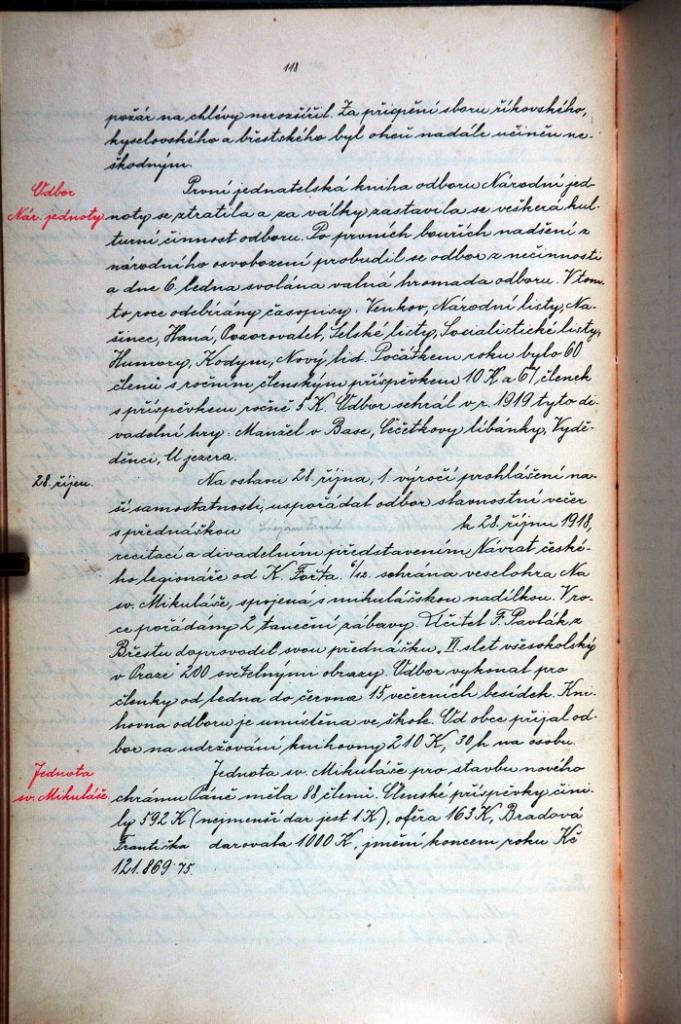 118
požár na chlévy nerozšířil. Za přispění sboru říkovského,
kyselovského a břestského byl oheň nadále učiněn ne-
škodným.
Odbor
Nár. jednoty
První jednatelská kniha odboru Národní jed-
noty se ztratila a za války zastavila se veškerá kul-
turní činnost odboru. Po prvních bouřích nadšení z
národního osvobození probudil se odbor z nečinnosti
a dne 6. ledna svolána valná hromada odboru. V tom-
to roce odebírány časopisy: Venkov, Národní listy, Na-
šinec, Haná, Pozorovatel, Selské listy, Socialistické listy,
Humory, Kodym, Nový lid. Počátkem roku bylo 60
členů s ročním členským příspěvkem 10 K a 67 členek
s příspěvkem ročně 5 K. Odbor sehrál v r. 1919 tyto di-
vadelní hry: Manžel v Base, Čéčetkovy líbánky, Vydě-
děnci, U jezera.
28. říjen.
Na oslavu 28. října, 1. výročí prohlášení na-
ší samostatnosti, uspořádal odbor slavnostní večer
s přednáškou k 28. říjnu 1918,
recitací a divadelním představením Návrat české-
ho legionáře od K. Fořta. 6/12. sehrána veselohra Na
sv. Mikuláše, spojená s mikulášskou nadílkou. V ro-
ce pořádány 2 taneční zábavy. Učitel F. Pavlák z
Břestu doprovodil svou přednášku „VI. slet všesokolský
v Praze" 200 světelnými obrazy. Odbor vykonal pro
členky od ledna do června 15 večerních besídek. Kni-
hovna odboru je umístěna ve škole. Od obce přijal od-
bor na udržování knihovny 210 K, 30 h na osobu.
Jednota
sv. Mikuláše.
Jednota sv. Mikuláše pro stavbu nového
chrámu Páně měla 88 členů. Členské příspěvky čini-
ly 592 K (nejmenší dar jest 1 K), ofěra 163 K, Bradová
Františka darovala 1000 K, jmění koncem roku Kč
121.869·75.